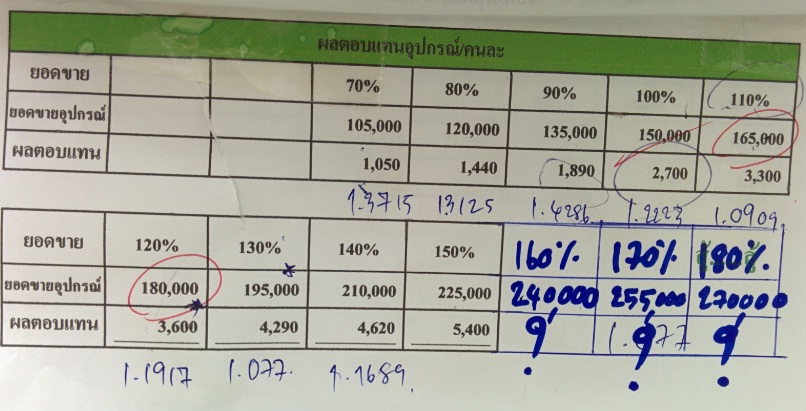 ผลตอบแทนอุปกรณ์/คนละ
ยอดขาย 70% 80% 90% 100% 110%
ยอดขายอุปกรณ์ 105,000 120,000 135,000 150,000 165,000
ผลตอบแทน 1,050 1,440 1,890 2,700 3,300
1.3715 1.3125 1.4286 1.2223 1.0909
ยอดขาย 120% 130% 140% 150% 160% 170% 180%
ยอดขายอุปกรณ์ 180,000 195,000 210,000 225,000 240000 255000 270000
ผลตอบแทน 3,600 4,290 4,620 5,400 ? ? ?
1.1917 1.077 1.1689